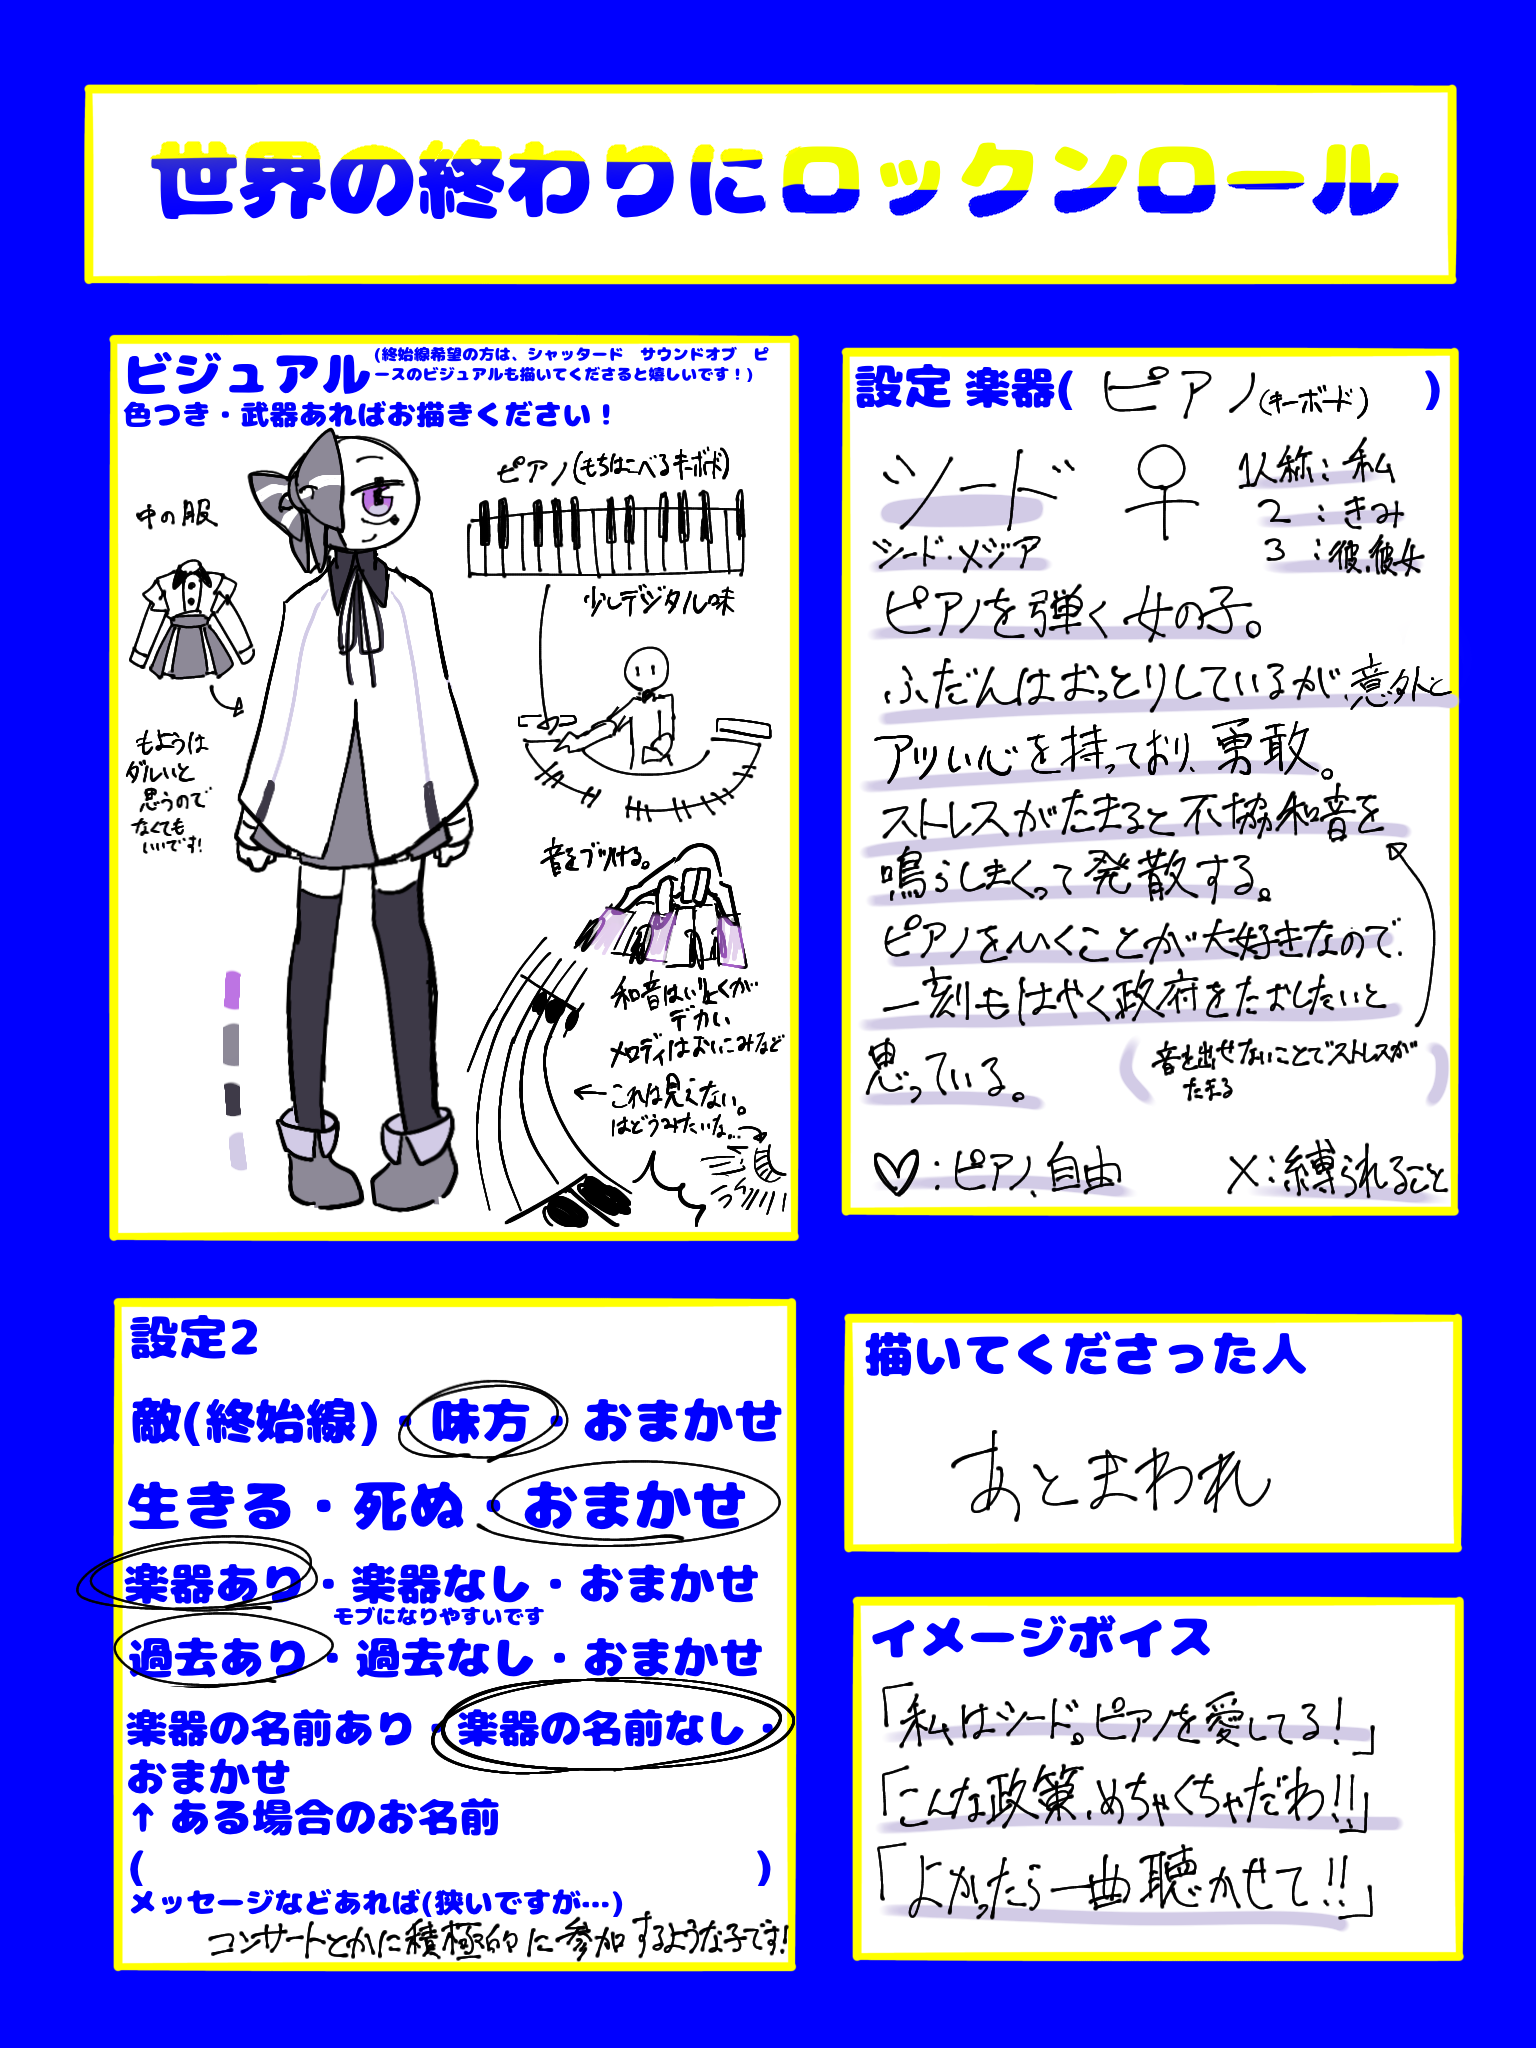 世界の終わりにロックンロール
ビジュアル
(終始線希望の方は、シャッタード　サウンドオブ　ピ
ースのビジュアルも描いてくださると嬉しいです！)
色つき・武器あればお描きください！
中の服
もようは
ダルいと
思うので
なくても
いいです!
ピアノ(もちはこべるキーボード)
少しデジタル味
音をブツける。
和音はいりょくが
デカい
メロディはおいこみなど
←これは見えない。
はどうみたいな…
設定 楽器( ピアノ(キーボード) )
シード ♀
シード・メジア
1人称：私
2 ：きみ
3 ：彼、彼女
ピアノを弾く女の子。
ふだんはおっとりしているが、意外と
アツい心を持っており、勇敢。
ストレスがたまると不協和音を
鳴らしまくって発散する。
ピアノをひくことが大好きなので、
一刻もはやく政府をたおしたいと
思っている。
(音を出せないことでストレスが
たまる)
♡：ピアノ、自由
×：縛られること
設定2
敵(終始線)・味方・おまかせ
生きる・死ぬ・おまかせ
楽器あり・楽器なし・おまかせ
モブになりやすいです
過去あり・過去なし・おまかせ
楽器の名前あり・楽器の名前なし・
おまかせ
↑ ある場合のお名前
(　)
メッセージなどあれば(狭いですが…)
コンサートとかに積極的に参加するような子です!
描いてくださった人
あとまわれ
イメージボイス
「私はシード。ピアノを愛してる！」
「こんな政策、めちゃくちゃだわ!!」
「よかったら一曲聴かせて!!」